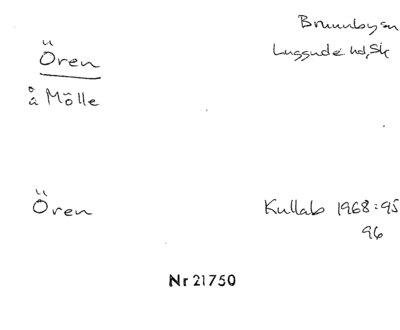 Ören
å Mölle
Brunnby sn
Luggude hd, Sk
Ören
Kullab 1968:95
96
Nr 21750